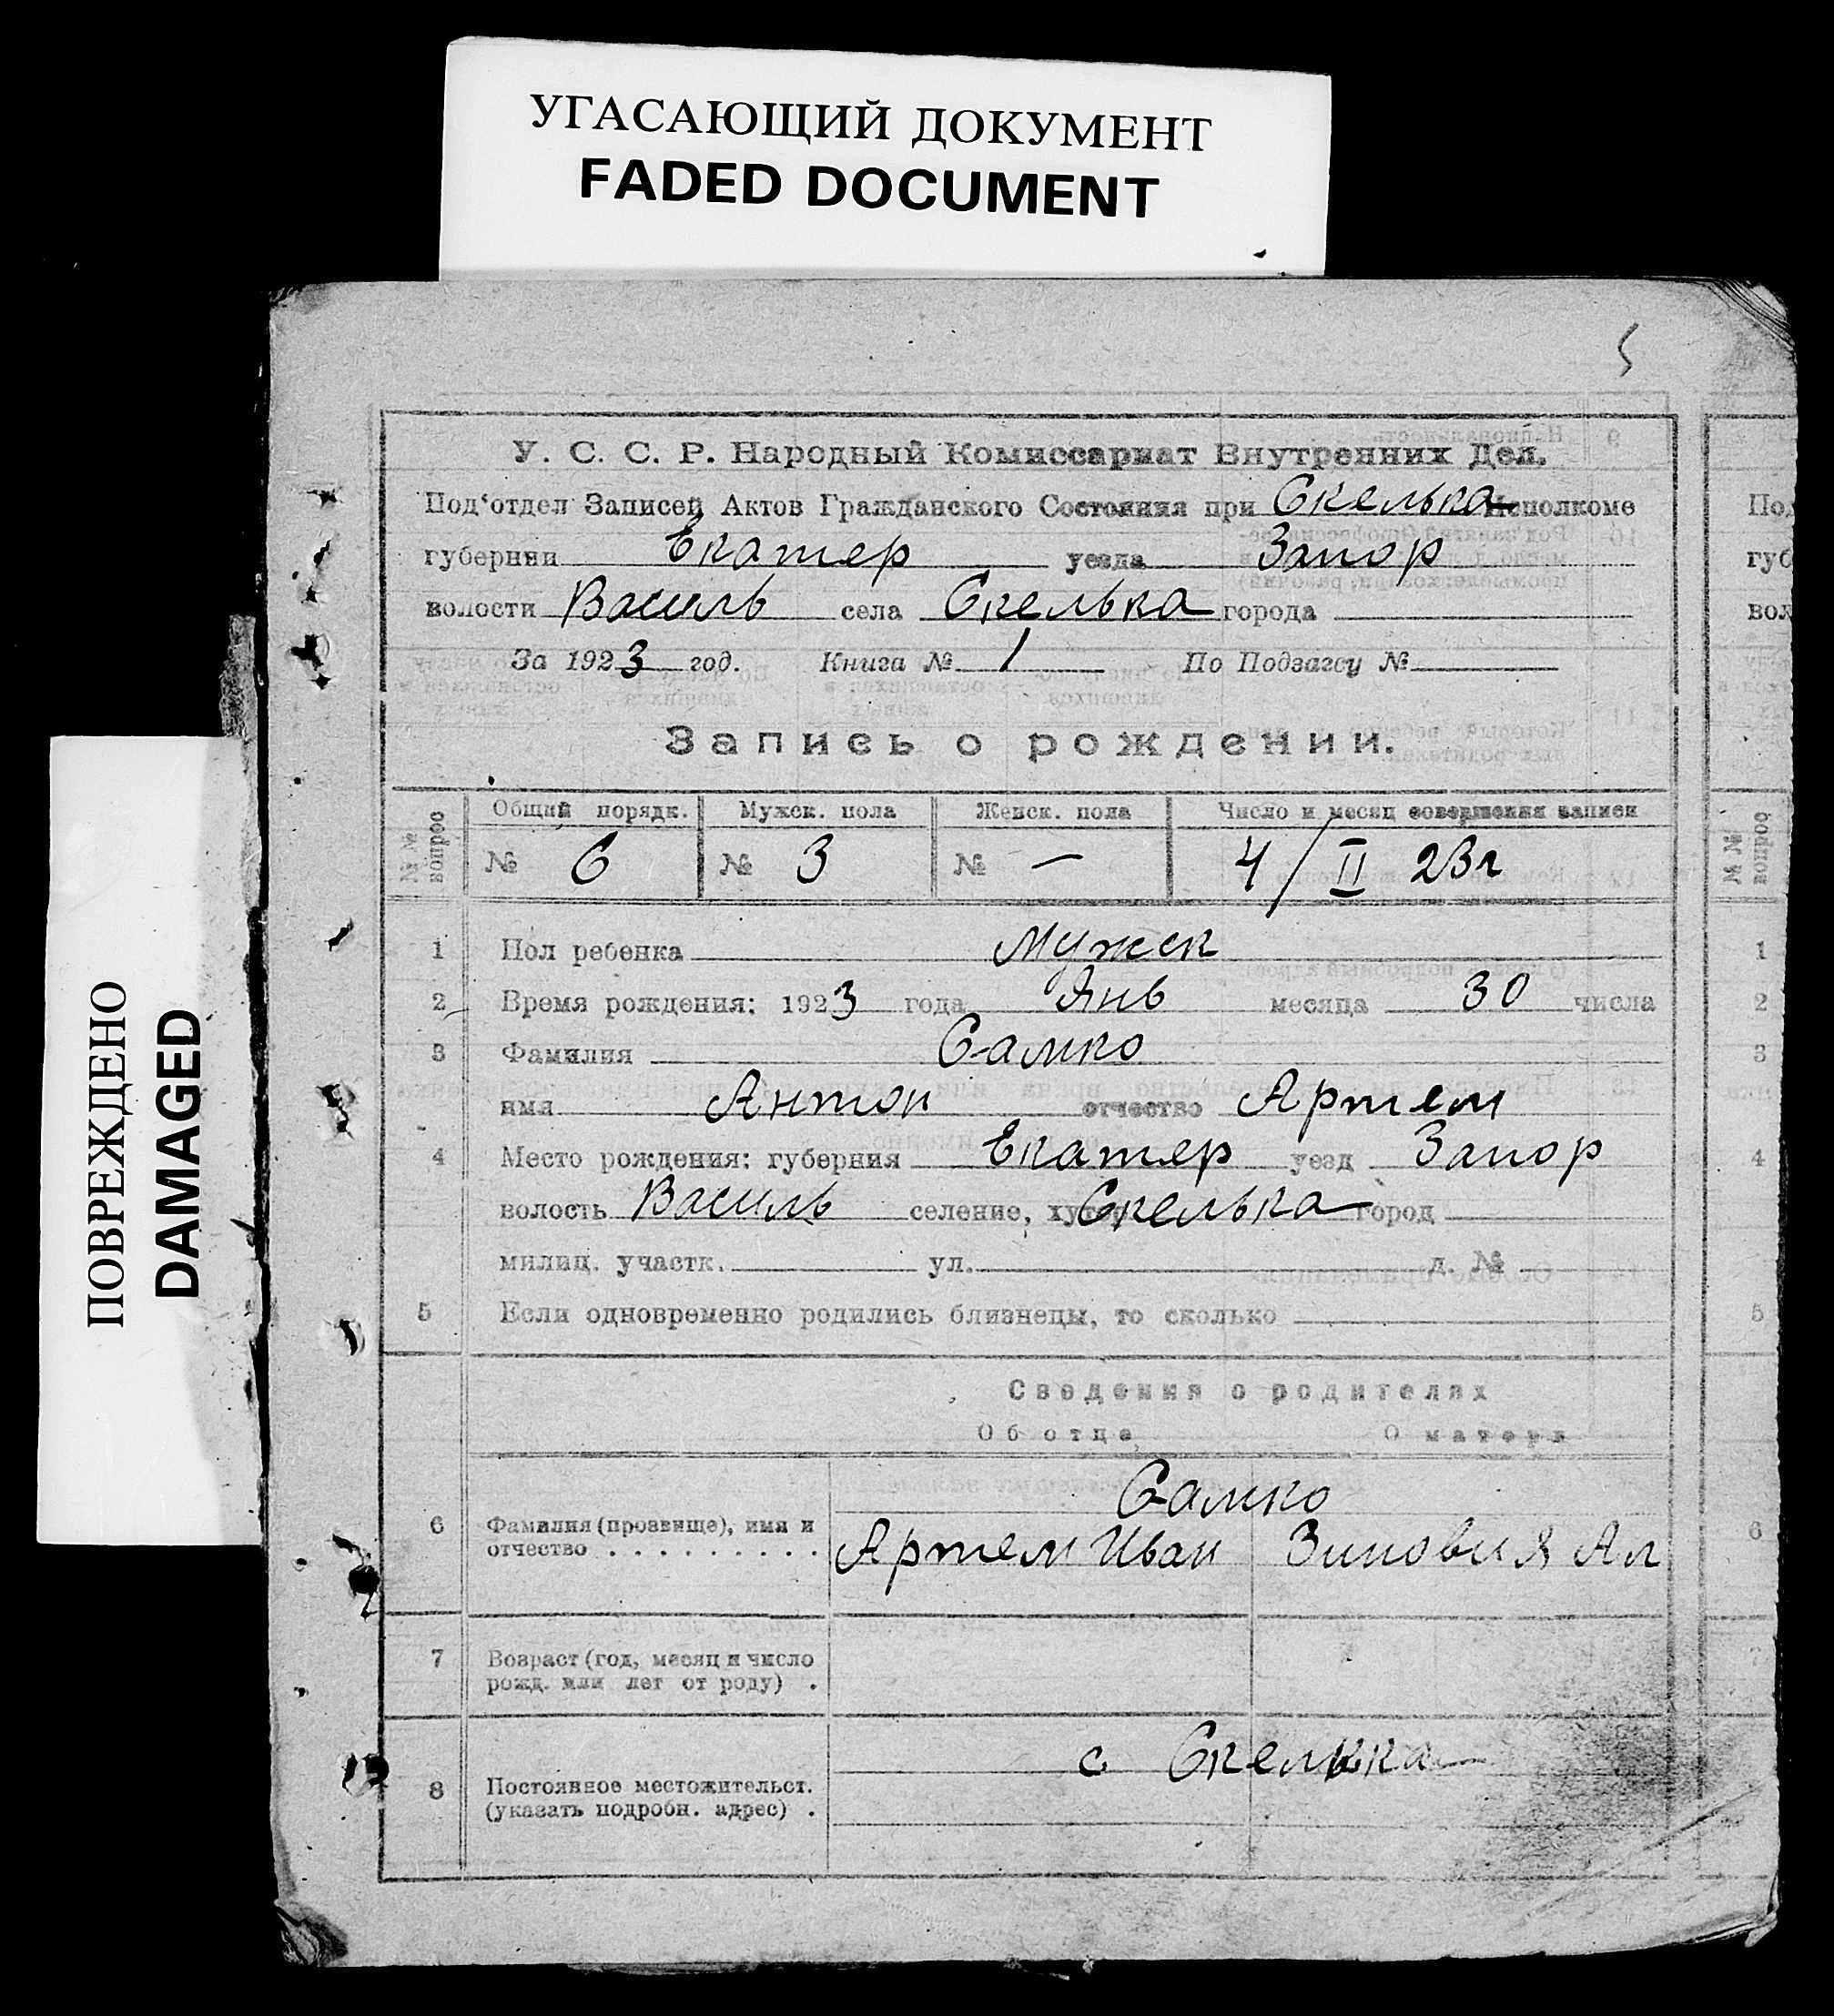 УГАСАЮЩИЙ ДОКУМЕНТ
FADED DOCUMENT
ПОВРЕЖДЕНО
DAMAGED
5
У. С. С. Р. Народный Комиссариат Внутренних Дел.
Под'отдел Записей Актов Гражданского Состояния при Скелька Исполкоме
губернии Екатер уезда Запор
волости Василь села Скелька города
За 1923 год. Книга № 1 По Подзагсу №
Запись о рождении.
№№ вопрос Общий порядк. Мужск. пола Женск. пола Число и месяц совершения записи
№ 6 № 3 № — 4/II 23г
1 Пол ребенка Мужск
2 Время рождения: 1923 года Янв месяца 30 числа
3 Фамилия Самко
имя Антон отчество Артем
4 Место рождения: губерния Екатер уезд Запор
волость Василь селение, Скелька город
милиц. участк. ул. д. №
5 Если одновременно родились близнецы, то сколько
Сведения о родителях
Об отце О матери
Самко
6 Фамилия (прозвище), имя и
отчество . . . . . . . . . Артем Иван Зиновия Ал
7 Возраст (год, месяц и число
рожд. или лет от роду) .
с Скелька
8 Постоянное местожительст.
(указать подробн. адрес) .
Под
губ
вол
№№ вопрос
1
2
3
4
5
6
7